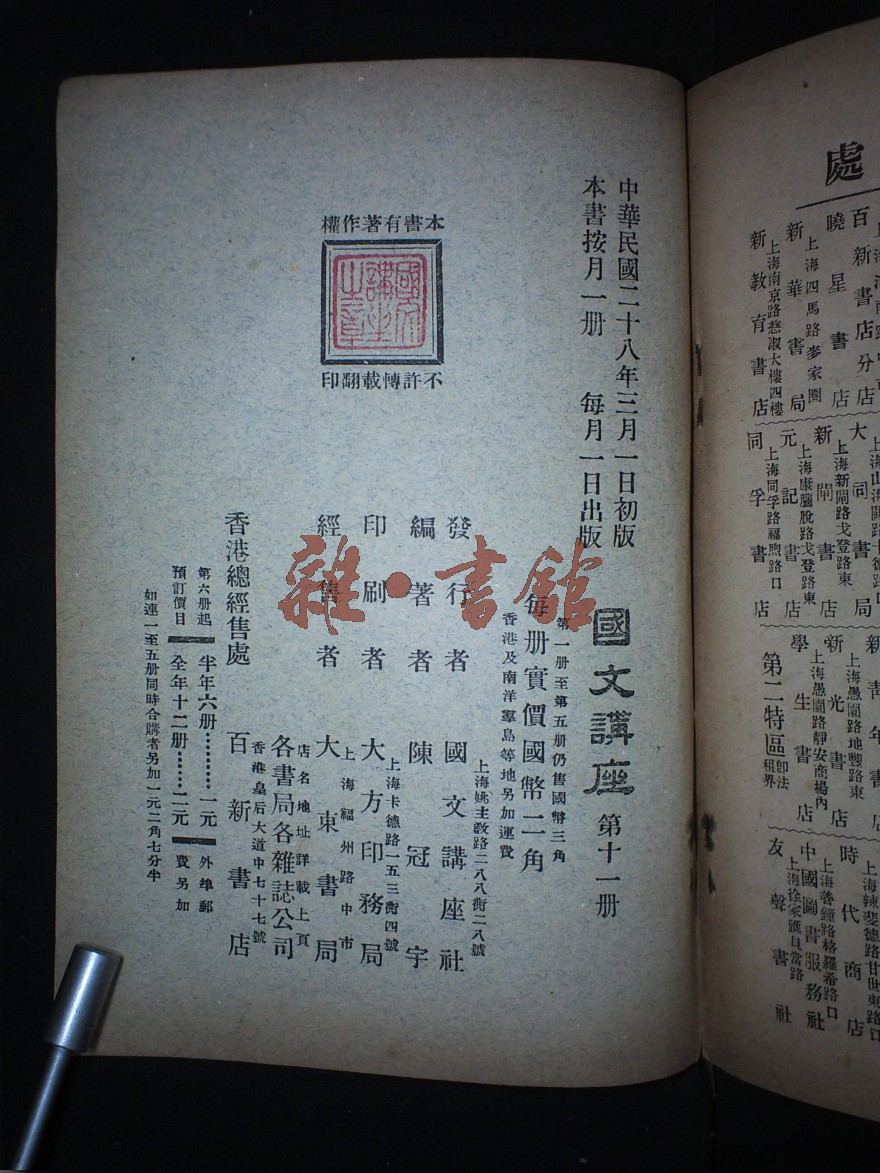 中華民國二十八年三月一日初版
本書按月一册　每月一日出版
國文講座　第十一册
第一册至第五册仍售國幣三角
每册實價國幣二角
香港及南洋羣島等地另加運費
發行者　國文講座社
上海姚主教路二八八街二八號
編著者　陳冠宇
印刷者　大方印務局
上海卡德路一五三街四號
經售者　大東書局
上海福州路中市
各書局各雜誌公司
店名地址詳載上頁
香港總經售處　百新書店
香港皇后大道中七十七號
第六册起
預訂價目
半年六册………一元
全年十二册……二元
外埠郵
費另加
如連一至五册同時合購者另加一元二角七分半
本書有著作權
國文講坐之章
不許轉載翻印
雜·書館
處
百新書店分店
曉星書店
上海四馬路麥家圈
新華書局
上海南京路慈淑大樓四樓
新教育書店
大同書局
上海新閘路戈登路東
新閘書店
上海康腦脫路戈登路東
元記書店
上海同孚路福煦路口
同孚書店
新青年書店
上海愚園路地豐路東
新光書店
上海愚園路靜安商場內
學生書店
第二特區即法租界
時代商店
上海善鐘路格羅希路口
中國圖書服務社
上海徐家匯貝當路
友聲書社